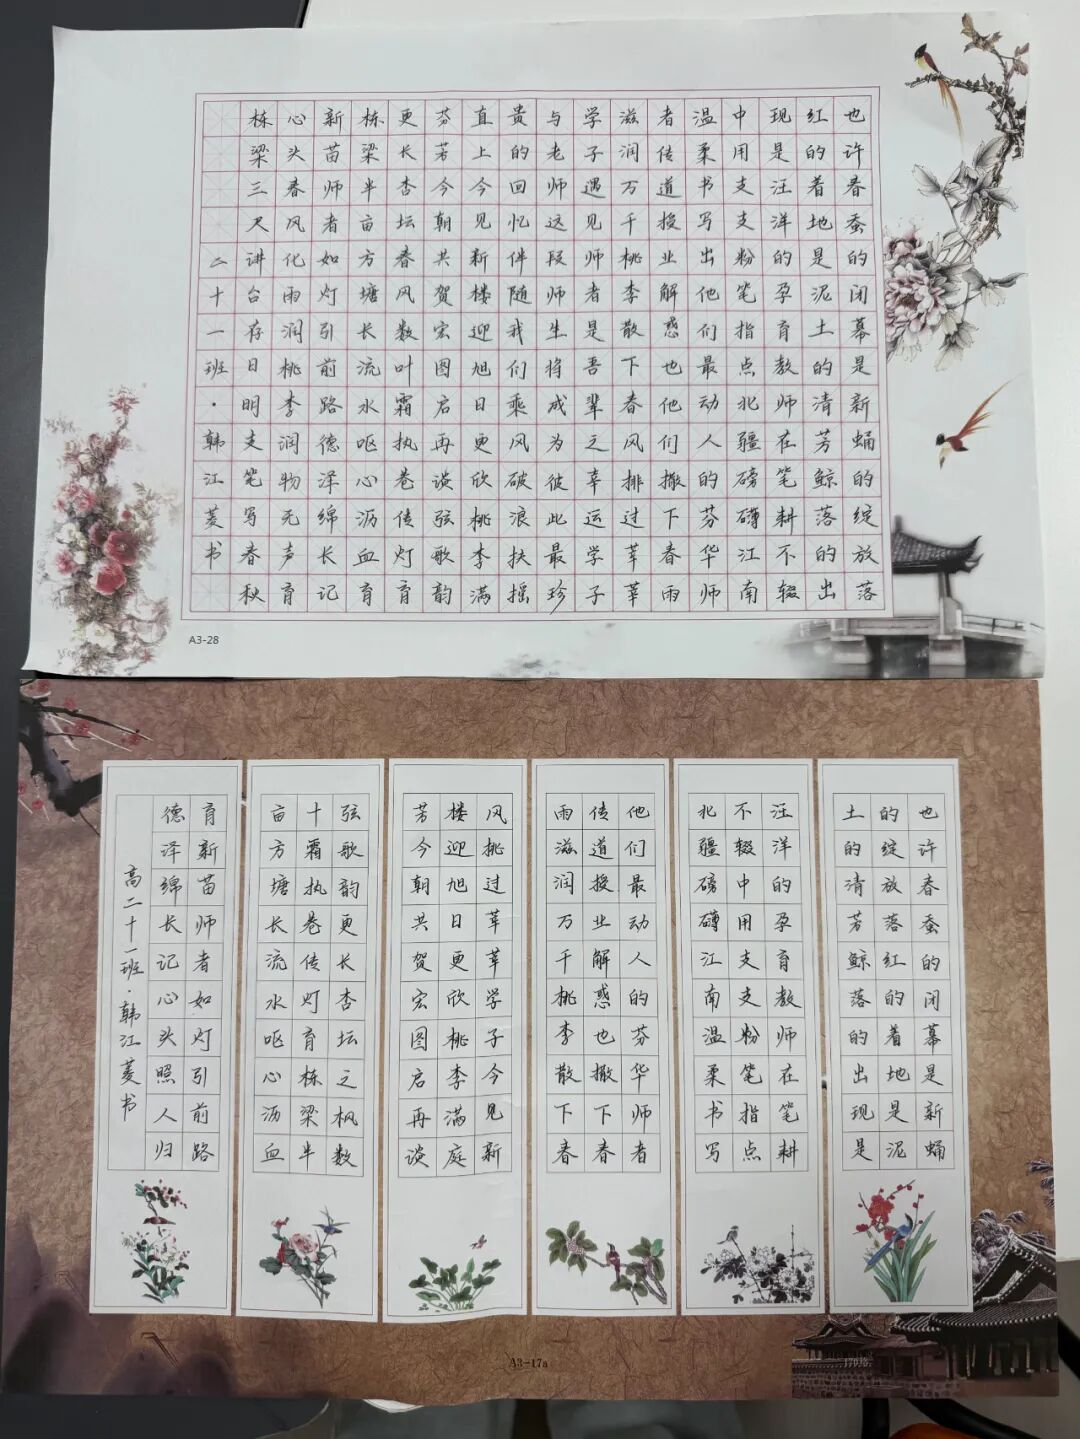 也许春蚕的闭幕是新蛹的绽放落
红的着地是泥土的清芳鲸落的出
现是汪洋的孕育教师在笔耕不辍
中用支支粉笔指点北疆磅礴江南
温柔书写出他们最动人的芬华师
者传道授业解惑也他们撒下春雨
滋润万千桃李散下春风排过莘莘
学子遇见师者是吾辈之幸运学子
与老师这段师生将成为彼此最珍
贵的回忆伴随我们乘风破浪扶摇
直上今见新楼迎旭日更欣桃李满
芬芳今朝共贺宏图启再谈弦歌韵
更长杏坛春风数叶霜执卷传灯育
栋梁半亩方塘长流水呕心沥血育
新苗师者如灯引前路德泽绵长记
心头春风化雨润桃李润物无声育
栋梁三尺讲台存日明支笔写春秋
二十一班·韩江菱书
A3-28
也许春蚕的闭幕是新蛹
的绽放落红的着地是泥
土的清芳鲸落的出现是
汪洋的孕育教师在笔耕
不辍中用支支粉笔指点
北疆磅礴江南温柔书写
他们最动人的芬华师者
传道授业解惑也撒下春
雨滋润万千桃李散下春
风挑过莘莘学子今见新
楼迎旭日更欣桃李满庭
芳今朝共贺宏图启再谈
弦歌韵更长杏坛之枫数
十霜执卷传灯育栋梁半
亩方塘长流水呕心沥血
育新苗师者如灯引前路
德泽绵长记心头照人归
高二十一班·韩江菱书
A3-17a